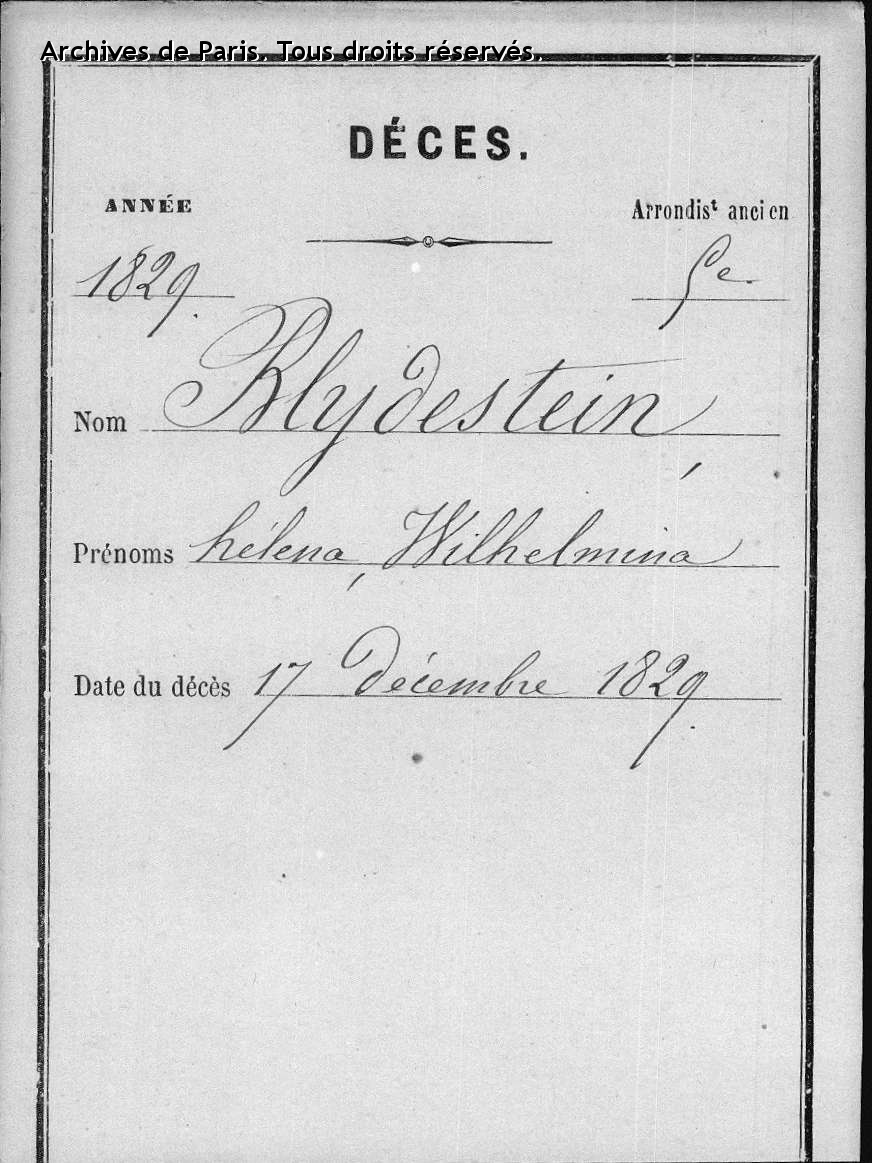 Archives de Paris. Tous droits réservés.
DÉCES.
ANNÉE
Arrondis^t ancien
1829.
5e
Nom Blydestein,
Prénoms hélena, Wilhelmina
Date du décès 17 Décembre 1829.